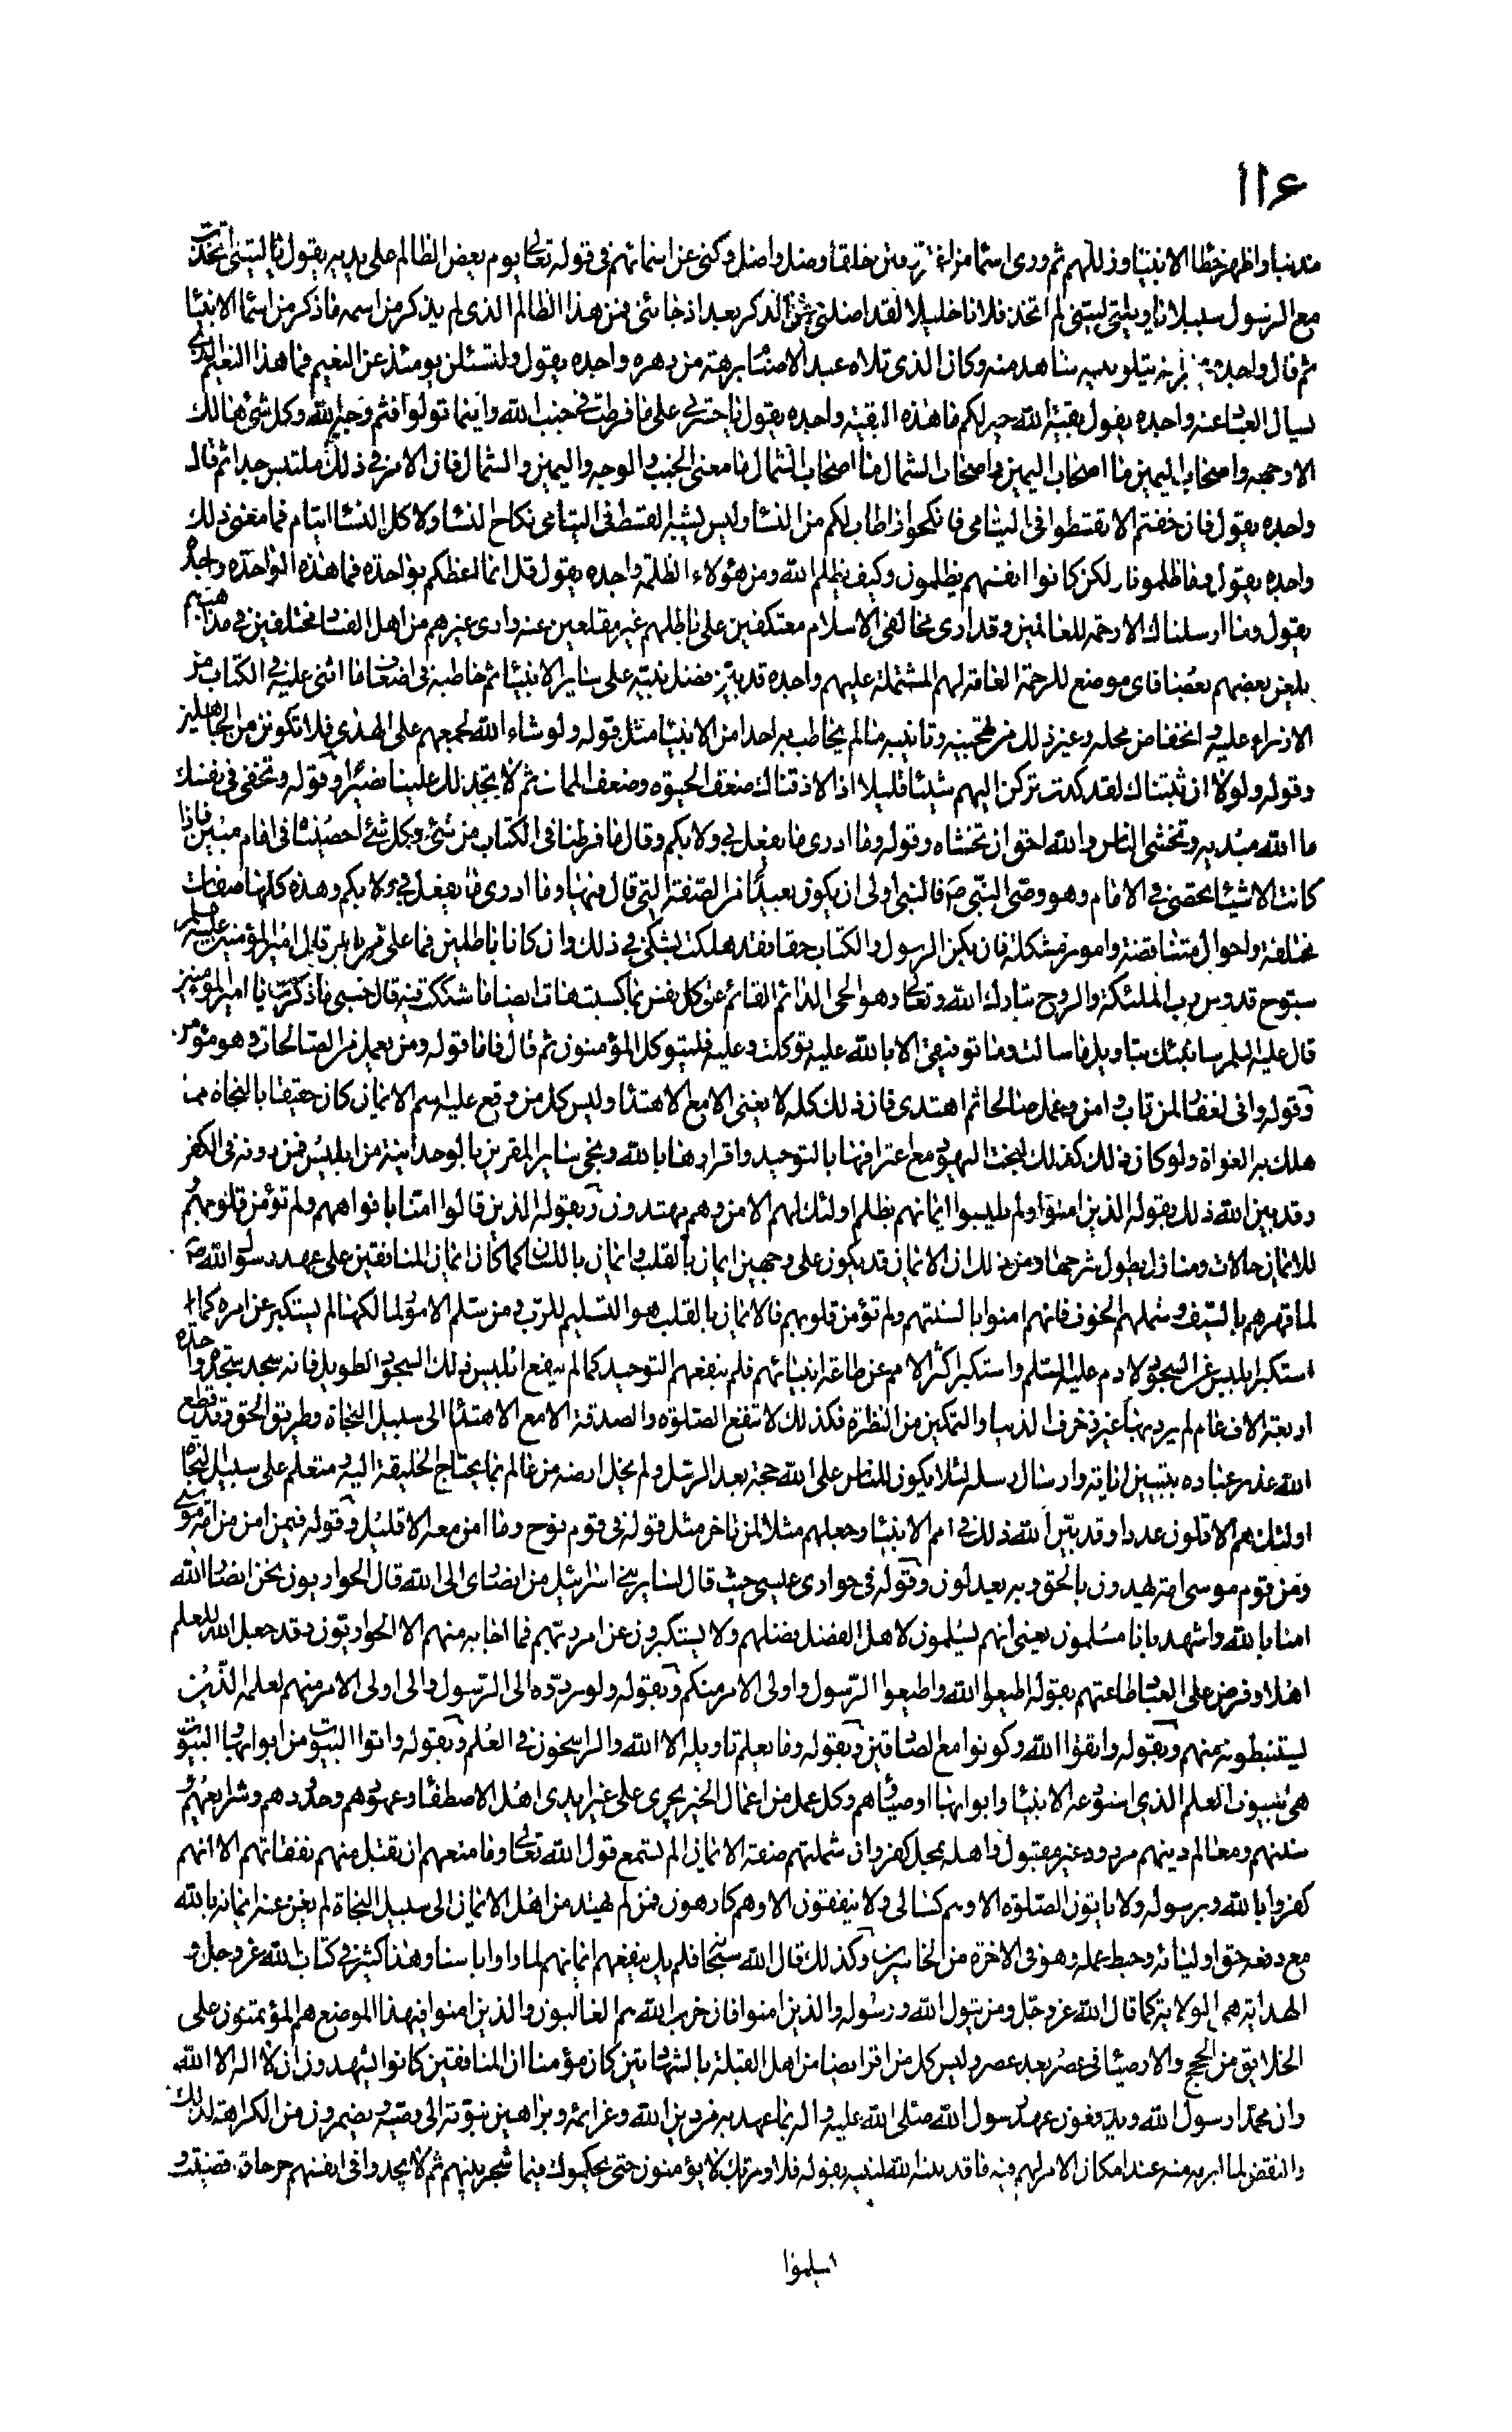 ١١٤
واظهر خطا الانبياء وزللهم ثم ورى اسما من وفتن خلقا وضل واضل وكنى عن اسمائهم فى قوله تعالى يوم يعض الظالم على يديه يقول يا ليتنى اتخذت
مع الرسول سبيلا يا ويلتى ليتنى لم اتخذ فلانا خليلا لقد اضلنى عن الذكر بعد اذ جائنى فمن هذا الظالم الذى لم يذكر من اسمه ما ذكر من اسما الانبيا
ثم قال واحده يتلوه شاهد منه وكان الذى تلاه عبد الاصنام برهة من دهره واحده يقول ولتسئلن يومئذ عن النعيم فما هذا النعيم الذى
يسال العباد عنه واحده يقول بقية الله خير لكم ما هذه البقية واحده يقول يا حسرتى على ما فرطت فى جنب الله واينما تولوا فثم وجه الله وكل شئ هالك
الا وجهه واصحاب اليمين ما اصحاب اليمين واصحاب الشمال ما اصحاب الشمال ما معنى الجنب والوجه واليمين والشمال فان الامر فى ذلك ملتبس جدا ثم قال
واحده يقول فان خفتم الا تقسطوا فى اليتامى فانكحوا ما طاب لكم من النسا وليس يشبه القسط فى اليتامى نكاح النسا ولا كل النسا ايتام فما معنى ذلك
واحده يقول وما ظلمونا ولكن كانوا انفسهم يظلمون وكيف يظلم الله ومن هؤلاء الظلمة واحده يقول قل انما اعظكم بواحدة فما هذه الواحدة واحده
يقول وما ارسلناك الا رحمة للعالمين وقد ارى مخالفى الاسلام معتكفين على باطلهم غير مقلعين عنه وارى غيرهم من اهل الفساد مختلفين فى مذاهبهم
يلعن بعضهم بعضا فاى موضع للرحمة العامة لهم المشتملة عليهم واحده قد بين فضل نبيه على سائر الانبيا ثم خاطبه فى اضعاف ما اثنى عليه فى الكتاب من
الازراء عليه وانخفاض محله وغير ذلك من تهجينه وتانيبه ما لم يخاطب به احدا من الانبيا مثل قوله ولو شاء الله لجمعهم على الهدى فلا تكونن من الجاهلين
وقوله ولولا ان ثبتناك لقد كدت تركن اليهم شيئا قليلا اذا لاذقناك ضعف الحيوه وضعف الممات ثم لا تجد لك علينا نصيرا وقوله وتخفى فى نفسك
ما الله مبديه وتخشى الناس والله احق ان تخشاه وقوله وما ادرى ما يفعل بى ولا بكم وقال ما فرطنا فى الكتاب من شئ وكل شئ احصيناه فى امام مبين فاذا
كانت الاشيا تحصى فى الامام وهو وصى النبى ص فالنبى اولى ان يكون بعيدا من الصفة التى قال فيها وما ادرى ما يفعل بى ولا بكم وهذه كلها صفات
مختلفة واحوال متناقضة وامور مشكلة فان يكن الرسول والكتاب حقا فقد هلكت لشكى فى ذلك وان كانا باطلين فما على من باس قال امير المؤمنين عليه السلم
سبوح قدوس رب الملئكة والروح تبارك الله وتعالى هو الحى الدائم القائم على كل نفس بما كسبت هات ايضا ما شككت فيه قال حسبى ما ذكرت يا امير المومنين
قال عليه السلم سانبئك بتاويل ما سالت وما توفيقى الا بالله عليه توكلت وعليه فليتوكل المؤمنون ثم قال فاما قوله ومن يعمل من الصالحات وهو مؤمن
وقوله وانى لغفار لمن تاب وامن وعمل صالحا ثم اهتدى فان ذلك كله لا يغنى الا مع الاهتدا وليس كل من وقع عليه اسم الايمان كان حقيقا بالنجاة مما
هلك به الغواة ولو كان ذلك كذلك لنجت اليهود مع اعترافها بالتوحيد واقرارها بالله ونجى سائر المقرين بالوحدانية من ابليس فمن دونه فى الكفر
وقد بين الله ذلك بقوله الذين امنوا ولم يلبسوا ايمانهم بظلم اولئك لهم الامن وهم مهتدون وبقوله الذين قالوا امنا بافواههم ولم تؤمن قلوبهم و
للايمان حالات ومنازل يطول شرحها ومن ذلك ان الايمان قد يكون على وجهين ايمان بالقلب وايمان باللسان كما كان ايمان المنافقين على عهد رسول الله ص
لما قهرهم بالسيف وشملهم الخوف فانهم امنوا بالسنتهم ولم تؤمن قلوبهم فالايمان بالقلب هو التسليم للرب ومن سلم الامور لمالكها لم يستكبر عن امره كما
استكبر ابليس عن السجود لادم عليه السلم واستكبر اكثر الامم عن طاعة انبيائهم فلم ينفعهم التوحيد كما لم ينفع ابليس ذلك السجود الطويل فانه سجد سجدة واحدة
اربعة الاف عام لم يرد بها غير زخرف الدنيا والتمكين من النظرة فكذلك لا تنفع الصلوة والصدقة الا مع الاهتدا الى سبيل النجاة وطريق الحق وقد قطع
الله عذر عباده بتبيين اياته وارسال رسله لئلا يكون للناس على الله حجة بعد الرسل ولم يخل ارضه من عالم بما يحتاج الخليقة اليه ومتعلم على سبيل نجاة
اولئك هم الاقلون عددا وقد بين الله ذلك فى امم الانبيا وجعلهم مثلا لمن تاخر مثل قوله فى قوم نوح وما امن معه الا قليل وقوله فيمن امن من امة موسى
ومن قوم موسى امة يهدون بالحق وبه يعدلون وقوله فى حوارى عيسى حيث قال لسائر بنى اسرائيل من انصارى الى الله قال الحواريون نحن انصار الله
امنا بالله واشهد بانا مسلمون يعنى انهم يسلمون لاهل الفضل فضلهم ولا يستكبرون عن امر ربهم فما اجابه منهم الا الحواريون وقد جعل الله للعلم
اهلا وفرض على العباد طاعتهم بقوله اطيعوا الله واطيعوا الرسول واولى الامر منكم وبقوله ولو ردوه الى الرسول والى اولى الامر منهم لعلمه الذين
يستنبطونه منهم وبقوله واتقوا الله وكونوا مع الصادقين وبقوله وما يعلم تاويله الا الله والراسخون فى العلم وبقوله واتوا البيوت من ابوابها والبيوت
هى بيوت العلم الذى استودعه الانبيا وابوابها اوصياؤهم وكل عمل من اعمال الخير يجرى على غير ايدى اهل الاصطفا وعهودهم وحدودهم وشرايعهم و
سننهم ومعالم دينهم مردود غير مقبول واهله بمحل كفر وان شملتهم صفة الايمان الم تسمع قول الله تعالى وما منعهم ان تقبل منهم نفقاتهم الا انهم
كفروا بالله وبرسوله ولا ياتون الصلوة الا وهم كسالى ولا ينفقون الا وهم كارهون فمن لم يهتد من اهل الايمان الى سبيل النجاة لم يغن عنه ايمانه بالله
مع دفعه حق اوليائه وحبط عمله وهو فى الاخرة من الخاسرين وكذلك قال الله سبحانه فلم يك ينفعهم ايمانهم لما راوا باسنا وهذا كثير فى كتاب الله عز وجل و
الهداية هى الولاية كما قال الله عز وجل ومن يتول الله ورسوله والذين امنوا فان حزب الله هم الغالبون والذين امنوا فى هذا الموضع هم المؤتمنون على
الخلايق من الحجج والاوصيا فى عصر بعد عصر وليس كل من اقر ايضا من اهل القبلة بالشهادتين كان مؤمنا ان المنافقين كانوا يشهدون ان لا اله الا الله
وان محمدا رسول الله ويدفعون عهد رسول الله صلى الله عليه واله بما عهد به من دين الله وعزايمه وبراهين نبوته الى وصيه ويضمرون من الكراهة لذلك
والنقض لما ابرمه منه عند امكان الامر لهم فيه ما قد بينه الله لنبيه بقوله فلا وربك لا يؤمنون حتى يحكموك فيما شجر بينهم ثم لا يجدوا فى انفسهم حرجا مما قضيت و
يسلموا